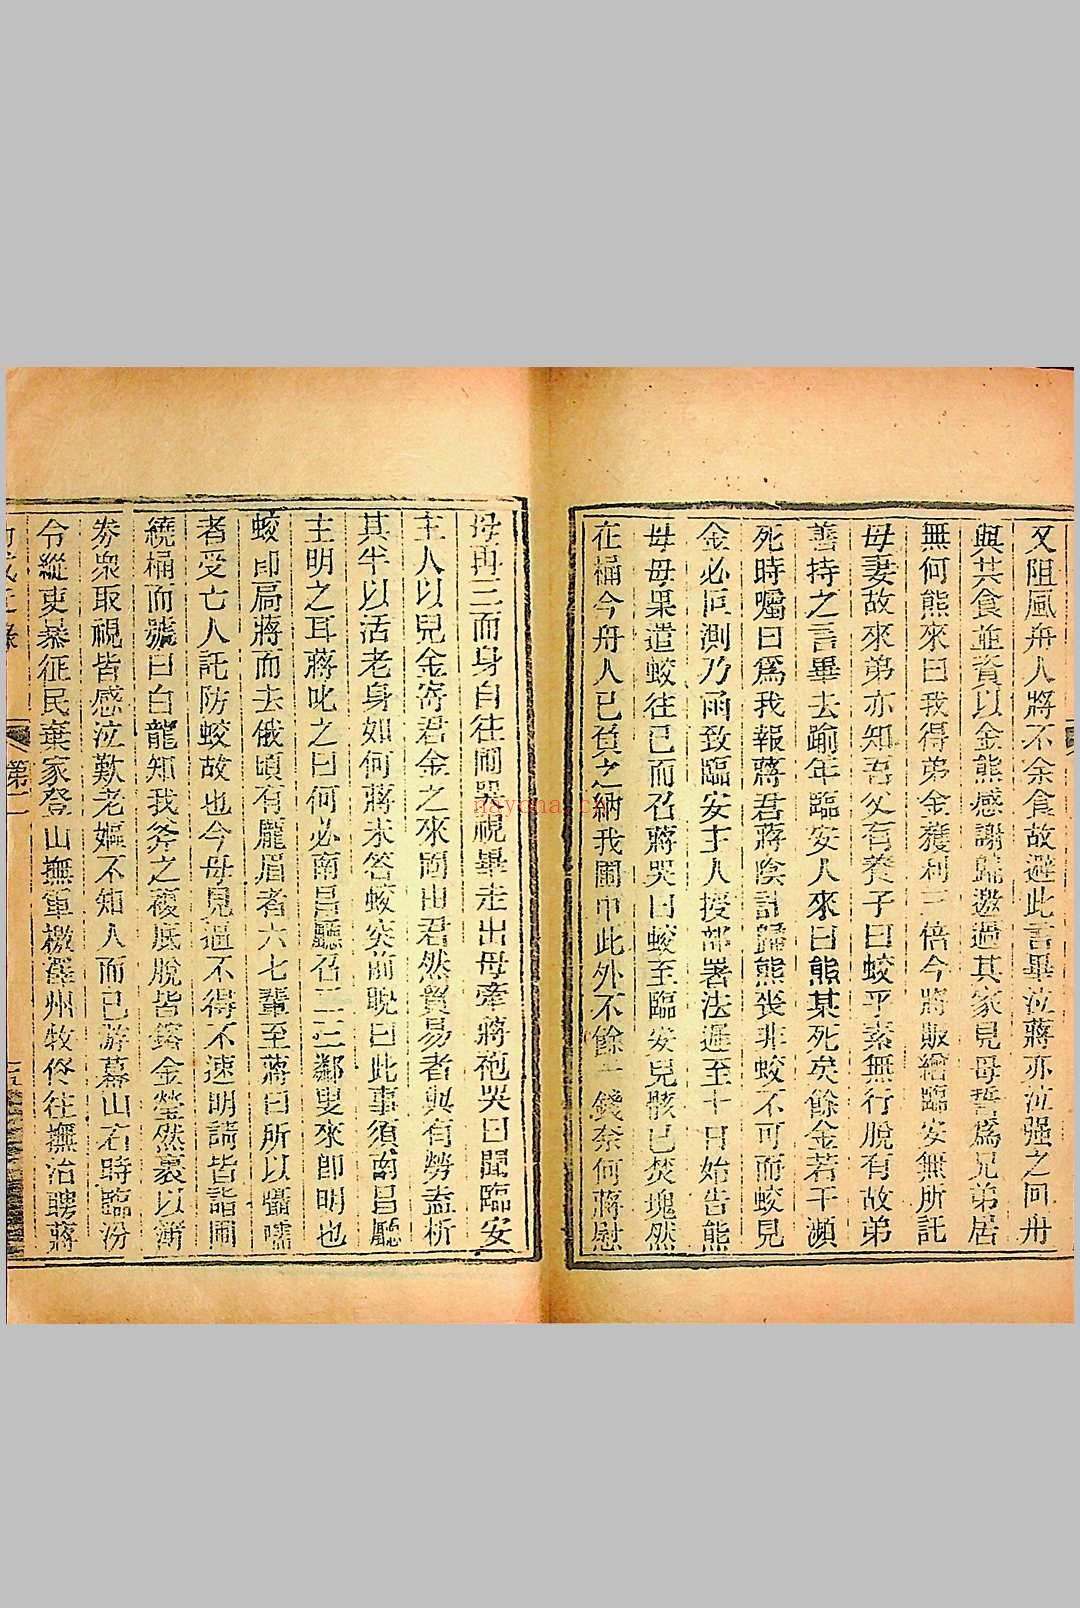 又阻風舟人將不余食故避此言畢泣蔣亦泣强之同舟
與共食並資以金熊感謝歸邀過其家見母誓爲兄弟居
無何熊來曰我得弟金獲利三倍今將販繒臨安無所託
母妻故來弟亦知吾父有養子曰蛟乎素無行脫有故弟
善持之言畢去踰年臨安人來曰熊某死矣餘金若干瀕
死時囑曰爲我報蔣君蔣陰計歸熊喪非蛟不可而蛟見
金必叵測乃兩致臨安主人授部署法遲至十日始告熊
母母果遣蛟往已而召蔣哭曰蛟至臨安兒骸已焚塊然
在桶今舟人已負之納我圃中此外不餘一錢奈何蔣慰
母再三而身自往圃哭視畢走出母牽蔣袍哭曰聞臨安
主人以兒金寄君金之來固由君然貿易者與有勞盍析
其半以活老身如何蔣未答蛟突前睨曰此事須南昌廳
主明之耳蔣叱之曰何必南昌廳召二三鄰叟來即明也
蛟即扃蔣而去俄頃有龐眉者六七輩至蔣曰所以囁嚅
者受亡人託防蛟故也今母見逼不得不速明請皆詣圃
繞桶而號曰白龍知我斧之複底脫皆鎔金瑩然裹以簿
券衆取視皆感泣歎老嫗不知人而已游幕山右時臨汾
令縱吏暴征民棄家登山撫軍檄澤州牧佟往撫治聘蔣
第二
naycha.cn